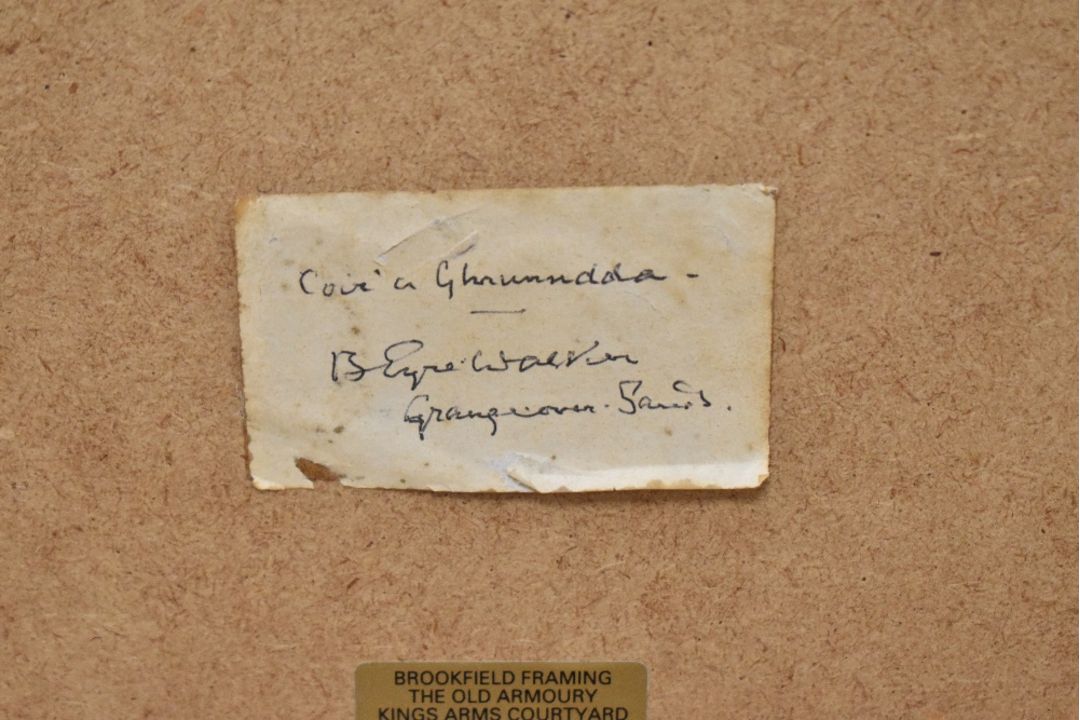 Coir' a Ghrunndda -
B Eyre Walker
Grange over Sands.
BROOKFIELD FRAMING
THE OLD ARMOURY
KINGS ARMS COURTYARD